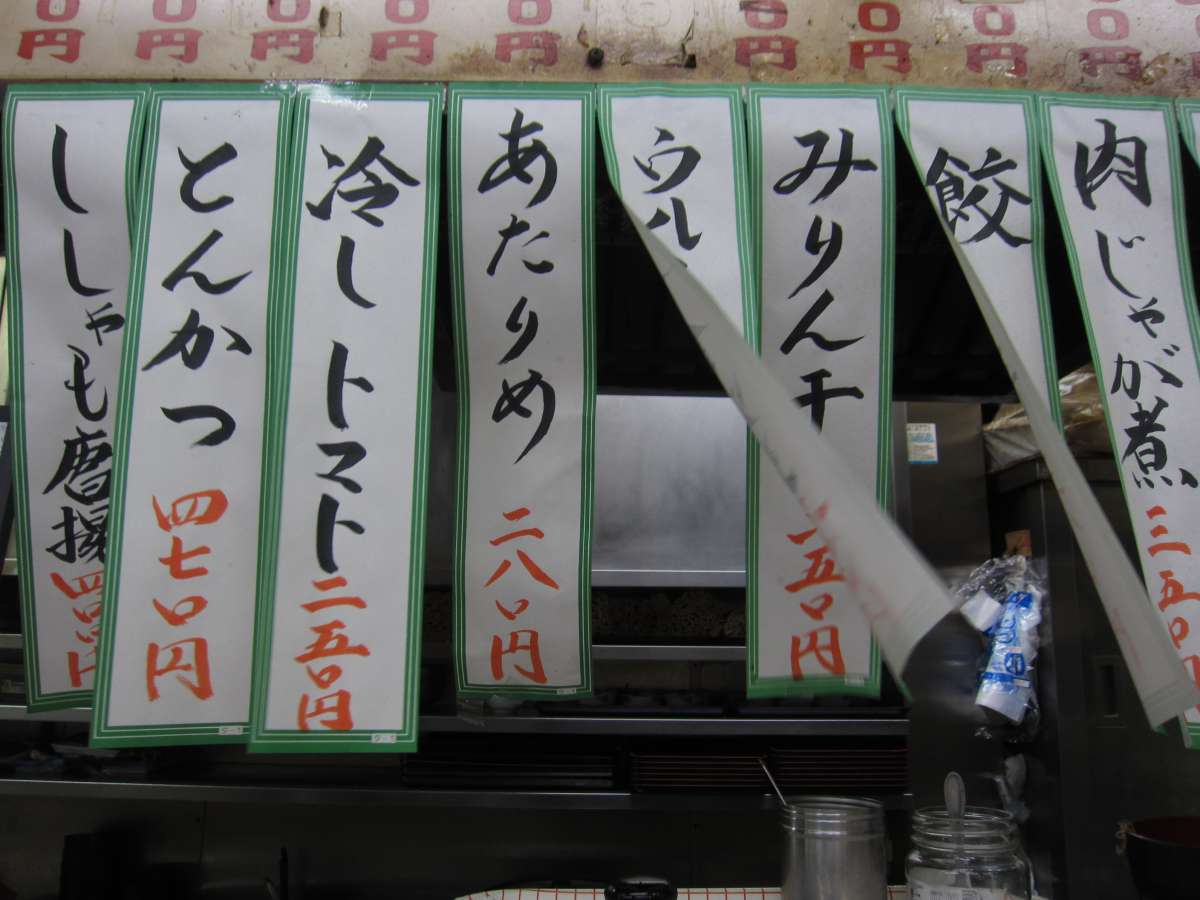 ０円 ０円 ０円 ０円 ０円 ０円 ０円 ０円 ０円
肉じゃが煮 三五〇
餃
みりん干 五〇円
ウル
あたりめ 二八〇円
冷しトマト 二五〇円
とんかつ 四七〇円
ししゃも唐揚 四〇円